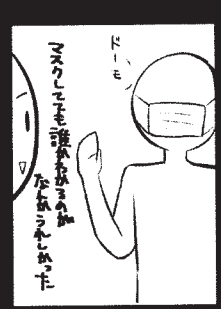 ドーモ
マスクしてても誰かわかるのが
なんかうれしかった